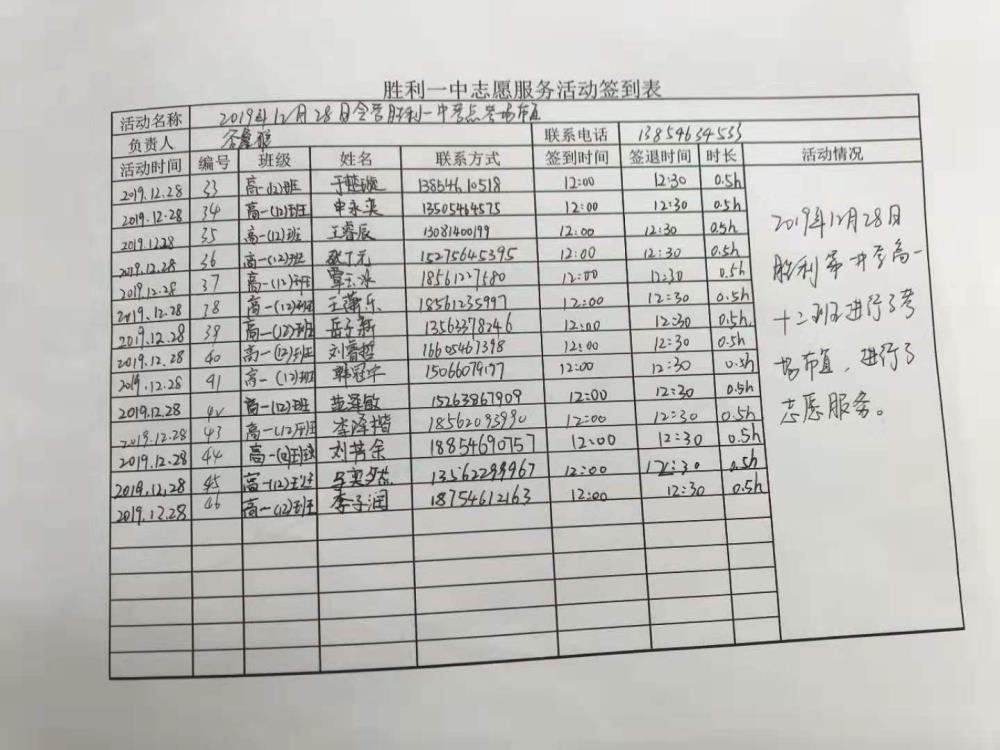 胜利一中志愿服务活动签到表
活动名称 2019年12月28日会考胜利一中考点考场布置
负责人 联系电话 13854634553
活动时间 编号 班级 姓名 联系方式 签到时间 签退时间 时长 活动情况
2019.12.28 33 高一(12)班 13854610518 12:00 12:30 0.5h
2019.12.28 34 高一(12)班 申永奕 13505464575 12:00 12:30 0.5h
2019.12.28 35 高一(12)班 王睿辰 13081400199 12:00 12:30 0.5h
2019.12.28 36 高一(12)班 15275645395 12:00 12:30 0.5h
2019.12.28 37 高一(12)班 18561227580 12:00 12:30 0.5h
2019.12.28 38 高一(12)班 18561235997 12:00 12:30 0.5h
2019.12.28 39 高一(12)班 岳子新 13563378246 12:00 12:30 0.5h
2019.12.28 40 高一(12)班 刘睿哲 16605467398 12:00 12:30 0.5h
2019.12.28 41 高一(12)班 12:00 12:30 0.5h
2019.12.28 42 高一(12)班 15263867909 12:00 12:30 0.5h
2019.12.28 43 高一(12)班 李泽楷 18562093990 12:00 12:30 0.5h
2019.12.28 44 高一 刘芳余 18854690757 12:00 12:30 0.5h
2019.12.28 45 高一(12)班 13562299967 12:00 12:30 0.5h
2019.12.28 46 高一(12)班 李子润 18754612163 12:00 12:30 0.5h
2019年12月28日
胜利第一中学高一
十二班进行了考
场布置，进行了
志愿服务。